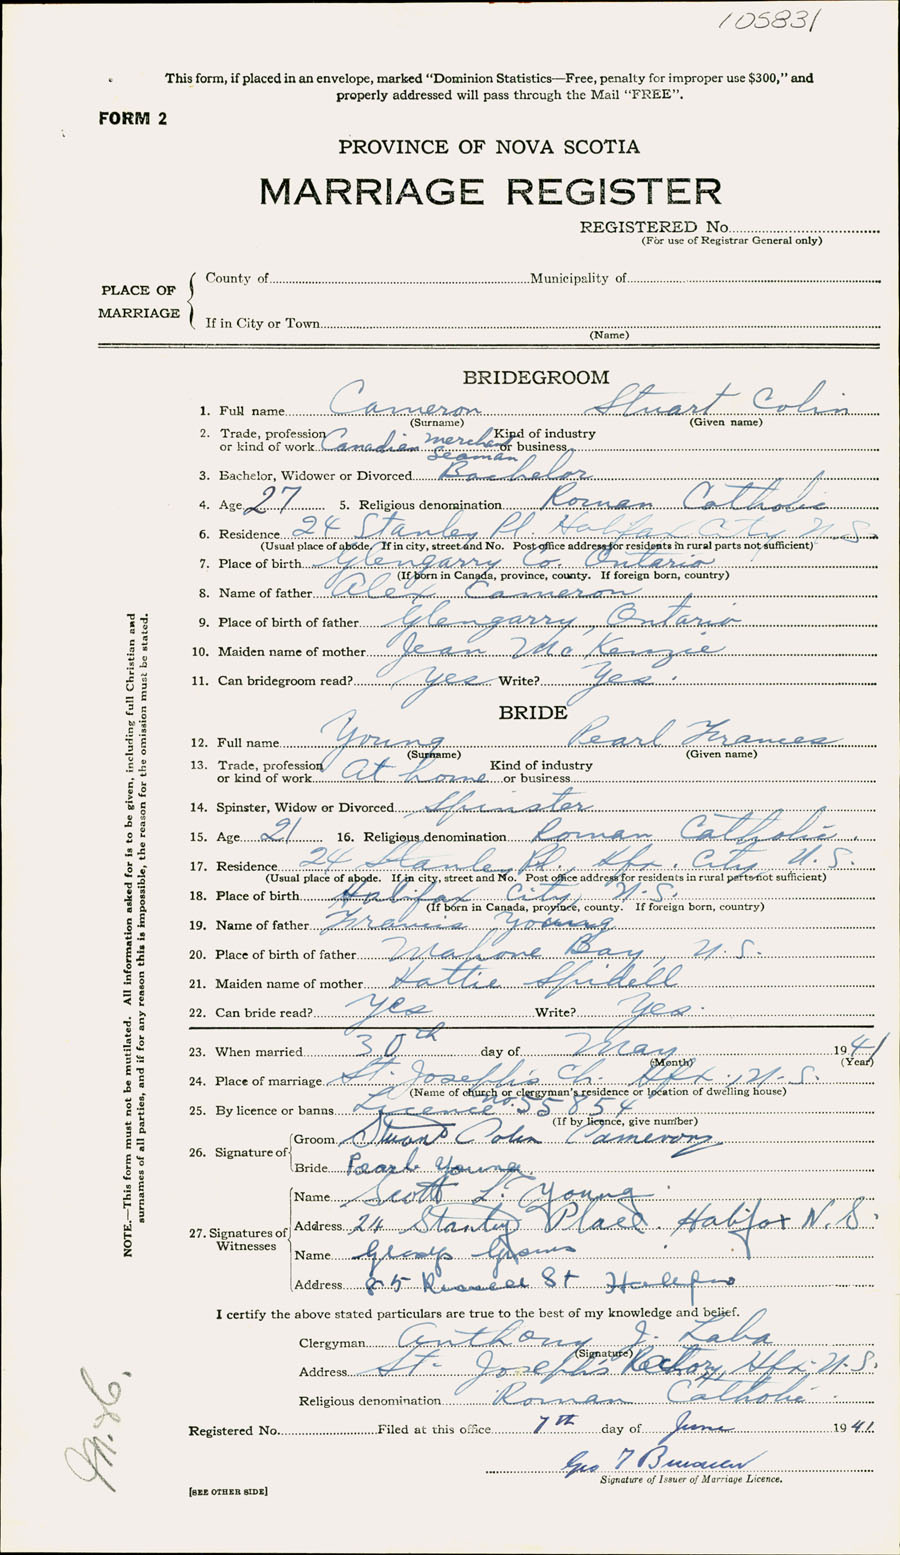 105831
This form, if placed in an envelope, marked “Dominion Statistics—Free, penalty for improper use $300,” and
properly addressed will pass through the Mail “FREE”.
FORM 2
PROVINCE OF NOVA SCOTIA
MARRIAGE REGISTER
REGISTERED No.
(For use of Registrar General only)
PLACE OF MARRIAGE
County of Municipality of
If in City or Town
(Name)
BRIDEGROOM
1. Full name Cameron Stuart Colin
(Surname) (Given name)
2. Trade, profession or kind of work Canadian merchant seaman Kind of industry or business
3. Bachelor, Widower or Divorced Bachelor
4. Age 27 5. Religious denomination Roman Catholic
6. Residence 24 Stanley Pl Halifax City N.S.
(Usual place of abode. If in city, street and No. Post office address for residents in rural parts not sufficient)
7. Place of birth Glengarry Co. Ontario
(If born in Canada, province, county. If foreign born, country)
8. Name of father Alex Cameron
9. Place of birth of father Glengarry, Ontario
10. Maiden name of mother Jean McKenzie
11. Can bridegroom read? Yes Write? Yes.
BRIDE
12. Full name Young Pearl Frances
(Surname) (Given name)
13. Trade, profession or kind of work At home Kind of industry or business
14. Spinster, Widow or Divorced Spinster
15. Age 21 16. Religious denomination Roman Catholic.
17. Residence 24 Stanley Pl., Hfx. City, N.S.
(Usual place of abode. If in city, street and No. Post office address for residents in rural parts not sufficient)
18. Place of birth Halifax City, N.S.
(If born in Canada, province, county. If foreign born, country)
19. Name of father Francis Young
20. Place of birth of father Mahone Bay, N.S.
21. Maiden name of mother Hattie Spidell
22. Can bride read? Yes Write? Yes.
23. When married 30th day of May 1941
(Month) (Year)
24. Place of marriage St. Joseph's Ch. Hfx., N.S.
(Name of church or clergyman's residence or location of dwelling house)
25. By licence or banns Licence no. 55854
(If by licence, give number)
26. Signature of
Groom Stuart Colin Cameron
Bride Pearl Young.
27. Signatures of Witnesses
Name Scott L. Young
Address 24 Stanley Place. Halifax N.S.
Name
Address 85 Russell St Halifax
I certify the above stated particulars are true to the best of my knowledge and belief.
Clergyman Anthony J. Laba
(Signature)
Address St. Joseph's Rectory, Hfx. N.S.
Religious denomination Roman Catholic.
Registered No. Filed at this office 7th day of June 1941.
Geo T
Signature of Issuer of Marriage Licence.
[SEE OTHER SIDE]
NOTE.—This form must not be mutilated. All information asked for is to be given, including full Christian and
surnames of all parties, and if for any reason this is impossible, the reason for the omission must be stated.